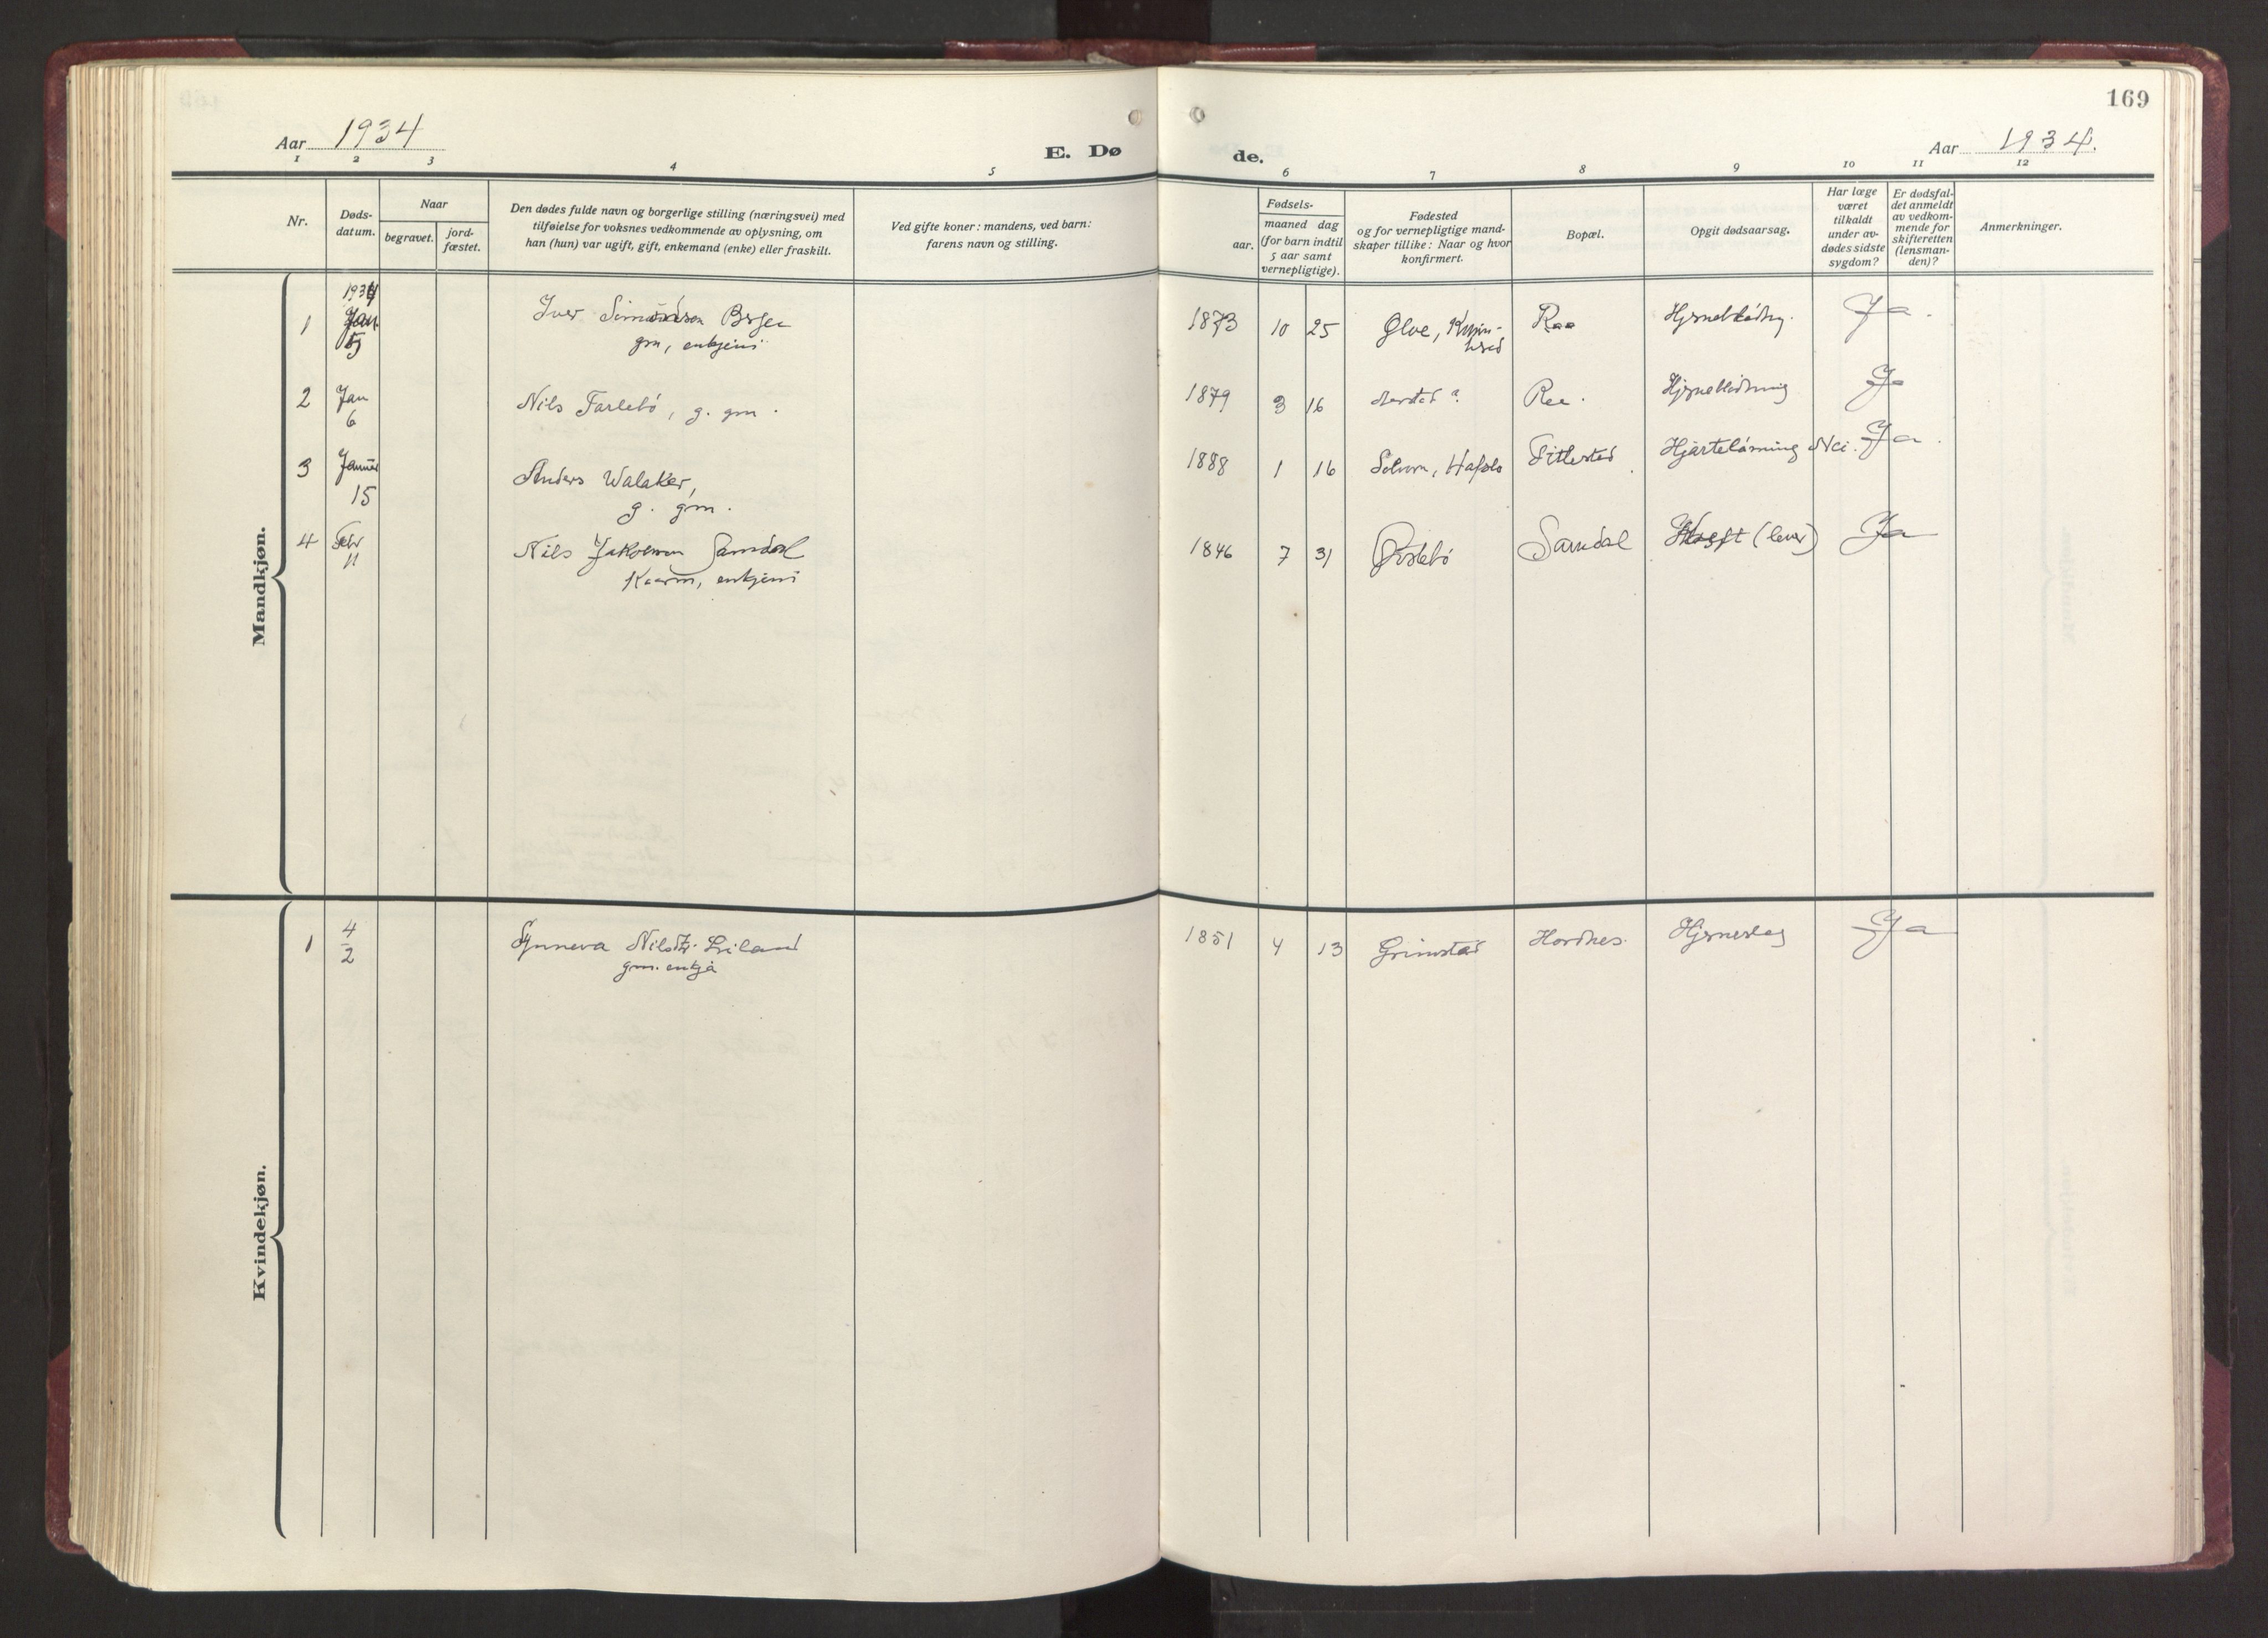 169
Aar 1934
E. Dø
de.
Aar 1934.
1 2 3 4 5 6 7 8 9 10 11 12
Nr.
Døds-
datum.
Naar
begravet.
jord-
fæstet.
Den dødes fulde navn og borgerlige stilling (næringsvei) med
tilføielse for voksnes vedkommende av oplysning, om
han (hun) var ugift, gift, enkemand (enke) eller fraskilt.
Ved gifte koner: mandens, ved barn:
farens navn og stilling.
aar.
Fødsels-
maaned dag
(for barn indtil
5 aar samt
vernepligtige).
Fødested
og for vernepligtige mand-
skaper tillike: Naar og hvor
konfirmert.
Bopæl.
Opgit dødsaarsag.
Har læge
været
tilkaldt
under av-
dødes sidste
sygdom?
Er dødsfal-
det anmeldt
av vedkom-
mende for
skifteretten
(lensman-
den)?
Anmerkninger.
Mandkjøn.
1934
1 Jan. 5 Iver 1873 10 25 Ølve, Raa Ja.
gm, enkjem
2 Jan Nils Farlebø, g. gm. 1879 3 16 Ree. Hjernebløding Ja
6
3 Januar Anders Walaker, 1888 1 16 Solvorn, Hafslo Titlestad Hjartelaming Nei. Ja.
15 g. gm.
4 Febr Nils Jakobsen Samdal 1846 7 31 Øvsttebø Samdal (lever) Ja
11 enkjem
Kvindekjøn.
1 4 Synneva Nilsdtr. Liland 1851 4 13 Grimstad Hordnes. Hjerneslag Ja
2 gm. enkja